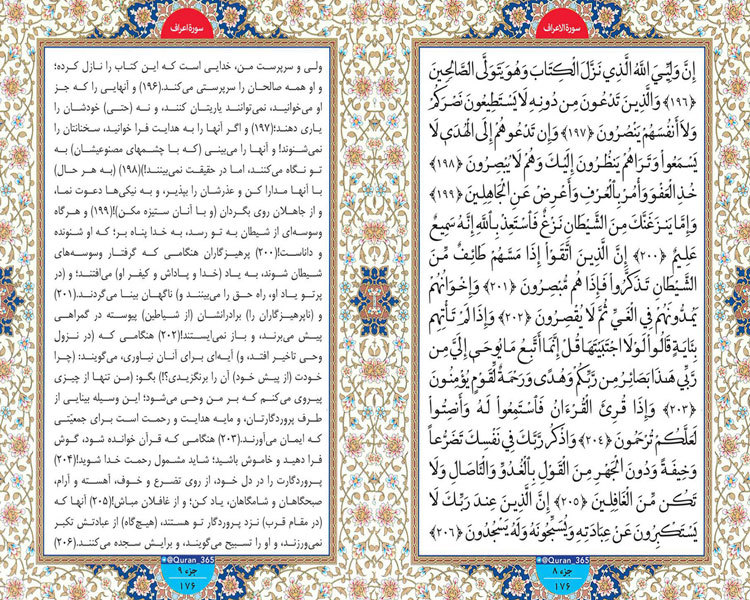 سورة الاعراف
إِنَّ وَلِيِّيَ اللَّهُ الَّذِي نَزَّلَ الْكِتَابَ وَهُوَ يَتَوَلَّى الصَّالِحِينَ
﴿۱۹۶﴾ وَالَّذِينَ تَدْعُونَ مِن دُونِهِ لَا يَسْتَطِيعُونَ نَصْرَكُمْ
وَلَا أَنفُسَهُمْ يَنصُرُونَ ﴿۱۹۷﴾ وَإِن تَدْعُوهُمْ إِلَى الْهُدَى لَا
يَسْمَعُوا وَتَرَاهُمْ يَنظُرُونَ إِلَيْكَ وَهُمْ لَا يُبْصِرُونَ ﴿۱۹۸﴾
خُذِ الْعَفْوَ وَأْمُرْ بِالْعُرْفِ وَأَعْرِضْ عَنِ الْجَاهِلِينَ ﴿۱۹۹﴾
وَإِمَّا يَنزَغَنَّكَ مِنَ الشَّيْطَانِ نَزْغٌ فَاسْتَعِذْ بِاللَّهِ إِنَّهُ سَمِيعٌ
عَلِيمٌ ﴿۲۰۰﴾ إِنَّ الَّذِينَ اتَّقَوْا إِذَا مَسَّهُمْ طَائِفٌ مِّنَ
الشَّيْطَانِ تَذَكَّرُوا فَإِذَا هُم مُّبْصِرُونَ ﴿۲۰۱﴾ وَإِخْوَانُهُمْ
يَمُدُّونَهُمْ فِي الْغَيِّ ثُمَّ لَا يُقْصِرُونَ ﴿۲۰۲﴾ وَإِذَا لَمْ تَأْتِهِم
بِآيَةٍ قَالُوا لَوْلَا اجْتَبَيْتَهَا قُلْ إِنَّمَا أَتَّبِعُ مَا يُوحَى إِلَيَّ مِن
رَّبِّي هَٰذَا بَصَائِرُ مِن رَّبِّكُمْ وَهُدًى وَرَحْمَةٌ لِّقَوْمٍ يُؤْمِنُونَ
﴿۲۰۳﴾ وَإِذَا قُرِئَ الْقُرْءَانُ فَاسْتَمِعُوا لَهُ وَأَنصِتُوا
لَعَلَّكُمْ تُرْحَمُونَ ﴿۲۰۴﴾ وَاذْكُر رَّبَّكَ فِي نَفْسِكَ تَضَرُّعاً
وَخِيفَةً وَدُونَ الْجَهْرِ مِنَ الْقَوْلِ بِالْغُدُوِّ وَالْآصَالِ وَلَا
تَكُن مِّنَ الْغَافِلِينَ ﴿۲۰۵﴾ إِنَّ الَّذِينَ عِندَ رَبِّكَ لَا
يَسْتَكْبِرُونَ عَنْ عِبَادَتِهِ وَيُسَبِّحُونَهُ وَلَهُ يَسْجُدُونَ ﴿۲۰۶﴾
@Quran_365
جزء ۸
۱۷۶
سورة اعراف
ولی و سرپرست من، خدایی است که این کتاب را نازل کرده؛
و او همه صالحان را سرپرستی می‌کند.(۱۹۶) و آنهایی را که جز
او می‌خوانید، نمی‌توانند یاریتان کنند، و نه (حتی) خودشان را
یاری دهند؛(۱۹۷) و اگر آنها را به هدایت فرا خوانید، سخنانتان را
نمی‌شنوند! و آنها را می‌بینی (که با چشمهای مصنوعیشان) به
تو نگاه می‌کنند، اما در حقیقت نمی‌بینند!)(۱۹۸) (به هر حال)
با آنها مدارا کن و عذرشان را بپذیر، و به نیکی‌ها دعوت نما،
و از جاهلان روی بگردان (و با آنان ستیزه مکن)!(۱۹۹) و هرگاه
وسوسه‌ای از شیطان به تو رسد، به خدا پناه بر؛ که او شنونده
و داناست!(۲۰۰) پرهیزگاران هنگامی که گرفتار وسوسه‌های
شیطان شوند، به یاد (خدا و پاداش و کیفر او) می‌افتند؛ و (در
پرتو یاد او، راه حق را می‌بینند و) ناگهان بینا می‌گردند.(۲۰۱)
و (ناپرهیزگاران را) برادرانشان (از شیاطین) پیوسته در گمراهی
پیش می‌برند، و باز نمی‌ایستند!(۲۰۲) هنگامی که (در نزول
وحی تاخیر افتد، و) آیه‌ای برای آنان نیاوری، می‌گویند: (چرا
خودت (از پیش خود) آن را برنگزیدی؟!) بگو: (من تنها از چیزی
پیروی می‌کنم که بر من وحی می‌شود؛ این وسیله بینایی از
طرف پروردگارتان، و مایه هدایت و رحمت است برای جمعیّتی
که ایمان می‌آورند.(۲۰۳) هنگامی که قرآن خوانده شود، گوش
فرا دهید و خاموش باشید؛ شاید مشمول رحمت خدا شوید!(۲۰۴)
پروردگارت را در دل خود، از روی تضرع و خوف، آهسته و آرام،
صبحگاهان و شامگاهان، یاد کن؛ و از غافلان مباش!(۲۰۵) آنها که
(در مقام قرب) نزد پروردگار تو هستند، (هیچ‌گاه) از عبادتش تکبر
نمی‌ورزند، و او را تسبیح می‌گویند، و برایش سجده می‌کنند.(۲۰۶)
@Quran_365
جزء ۹
۱۷۶